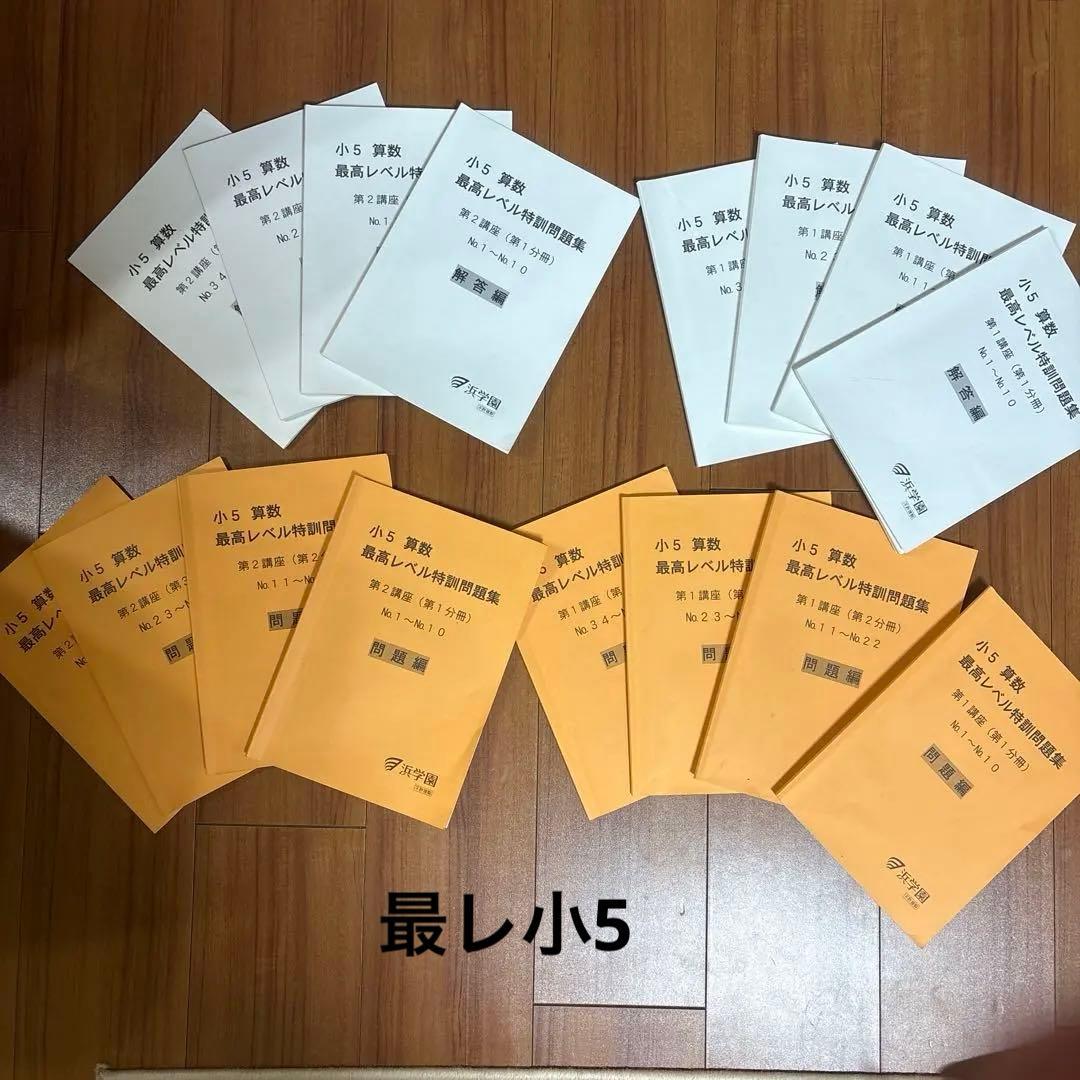 小5 算数
最高レベル特訓
第2講座
No.34
小5 算数
最高レベル
第2講座
No.2
小5 算数
最高レベル特
第2講座
No.1
小5 算数
最高レベル特訓問題集
第2講座（第1分冊）
No.1～No.10
解答編
浜学園
小5 算数
最高レベル
第1講座
No.3
小5 算数
最高レベル
第1講座
No.2
小5 算数
最高レベル特訓問
第1講座（第
No.11
小5 算数
最高レベル特訓問題集
第1講座（第1分冊）
No.1～No.10
解答編
浜学園
小5 算数
最高レベ
第2
小5 算数
最高レベル特訓
第2講座（第3
No.23～
問題
小5 算数
最高レベル特訓問
第2講座（第2
No.11～No
問
小5 算数
最高レベル特訓問題集
第2講座（第1分冊）
No.1～No.10
問題編
浜学園
5 算数
最高レベル特訓
第1講座（第
No.34～
問
小5 算数
最高レベル特訓
第1講座（第
No.23～
問
小5 算数
最高レベル特訓問題集
第1講座（第2分冊）
No.11～No.22
問題編
小5 算数
最高レベル特訓問題集
第1講座（第1分冊）
No.1～No.10
問題編
浜学園
最レ小5